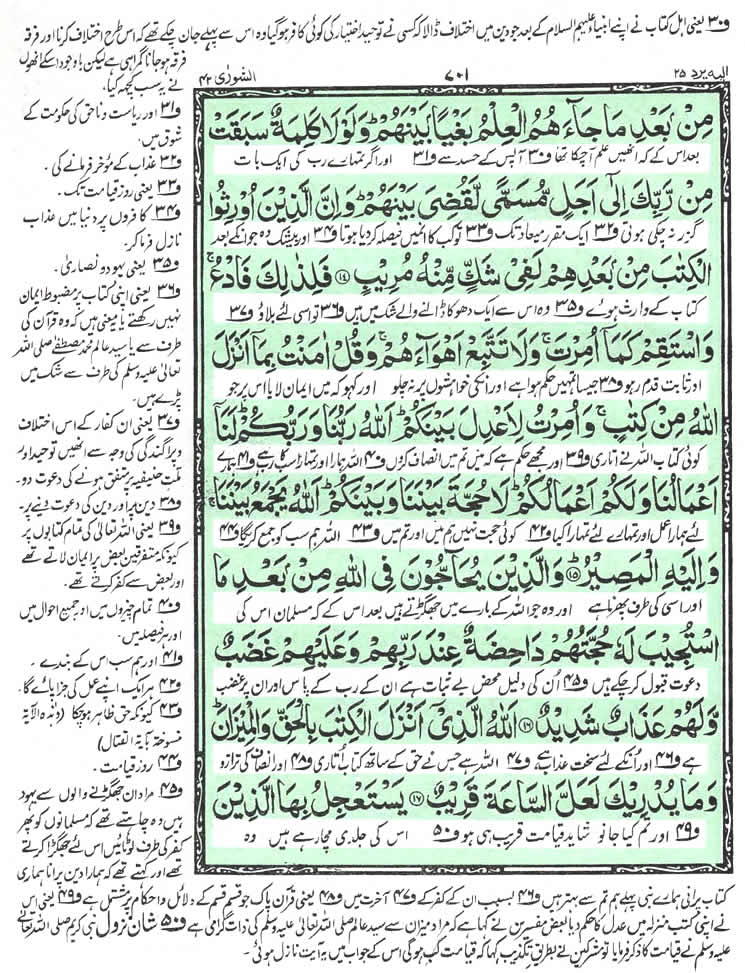 و۳۰ یعنی اہل کتاب نے اپنے انبیاء علیہم السلام کے بعد جو دین میں اختلاف ڈالا کہ کسی نے توحید اختیار کی کوئی کافر ہوگیا وہ اس سے پہلے جان چکے تھے کہ اس طرح اختلاف کرنا اور فرقہ
فرقہ ہوجانا گمراہی ہے لیکن باوجود اسکے انھوں
نے یہ سب کچھ کیا،
الیہ یرد ۲۵
۷۰۱
الشورٰی ۴۲
مِنۡۢ بَعۡدِ مَا جَآءَهُمُ الۡعِلۡمُ بَغۡيًۢا بَيۡنَهُمۡؕ وَلَوۡلَا كَلِمَةٌ سَبَقَتۡ
بعد اس کے کہ انھیں علم آچکا تھا و۳۰ آپس کے حسد سے و۳۱ اور اگر تمہارے رب کی ایک بات
مِنۡ رَّبِّكَ اِلٰٓى اَجَلٍ مُّسَمًّى لَّقُضِىَ بَيۡنَهُمۡؕ وَاِنَّ الَّذِيۡنَ اُوۡرِثُوا
گزر نہ چکی ہوتی و۳۲ ایک مقرر میعاد تک و۳۳ تو کب کا انہیں فیصلہ کردیا ہوتا و۳۴ اور بیشک وہ جو انکے بعد
الۡكِتٰبَ مِنۡۢ بَعۡدِهِمۡ لَفِىۡ شَكٍّ مِّنۡهُ مُرِيۡبٍ ﴿۱۴﴾ فَلِذٰلِكَ فَادۡعُ‌ۚ
کتاب کے وارث ہوئے و۳۵ وہ اس سے ایک دھوکا ڈالنے والے شک میں ہیں و۳۶ تو اسی لئے بلاؤ و۳۷
وَاسۡتَقِمۡ كَمَاۤ اُمِرۡتَ‌ۚ وَلَا تَتَّبِعۡ اَهۡوَآءَهُمۡ‌ۚ وَقُلۡ اٰمَنۡتُ بِمَاۤ اَنۡزَلَ
اور ثابت قدم رہو و۳۸ جیسا تمہیں حکم ہوا ہے اور انکی خواہشوں پر نہ چلو اور کہو کہ میں ایمان لایا اس پر جو
اللّٰهُ مِنۡ كِتٰبٍ‌ۚ وَاُمِرۡتُ لِاَعۡدِلَ بَيۡنَكُمۡؕ اَللّٰهُ رَبُّنَا وَرَبُّكُمۡؕ لَنَاۤ
کوئی کتاب اللہ نے اتاری و۳۹ اور مجھے حکم ہے کہ میں تم میں انصاف کروں و۴۰ اللہ ہمارا اور تمہارا سب کا رب ہے و۴۱ ہمارے
اَعۡمَالُنَا وَلَكُمۡ اَعۡمَالُكُمۡؕ لَا حُجَّةَ بَيۡنَنَا وَبَيۡنَكُمۡؕ اَللّٰهُ يَجۡمَعُ بَيۡنَنَا‌ۚ
لئے ہمارا عمل اور تمہارے لئے تمہارا کیا و۴۲ کوئی حجت نہیں ہم میں اور تم میں و۴۳ اللہ ہم سب کو جمع کریگا و۴۴
وَاِلَيۡهِ الۡمَصِيۡرُؕ ﴿۱۵﴾ وَالَّذِيۡنَ يُحَآجُّوۡنَ فِى اللّٰهِ مِنۡۢ بَعۡدِ مَا
اور اسی کی طرف پھرنا ہے اور وہ جو اللہ کے بارے میں جھگڑتے ہیں بعد اس کے کہ مسلمان اس کی
اسۡتُجِيۡبَ لَهٗ حُجَّتُهُمۡ دَاحِضَةٌ عِنۡدَ رَبِّهِمۡ وَعَلَيۡهِمۡ غَضَبٌ
دعوت قبول کرچکے ہیں و۴۵ اُن کی دلیل محض بے ثبات ہے ان کے رب کے پاس اور ان پر غضب
وَّلَهُمۡ عَذَابٌ شَدِيۡدٌ ﴿۱۶﴾ اَللّٰهُ الَّذِىۡۤ اَنۡزَلَ الۡكِتٰبَ بِالۡحَقِّ وَالۡمِيۡزَانَؕ
ہے و۴۶ اور اُنکے لئے سخت عذاب ہے و۴۷ اللہ ہے جس نے حق کے ساتھ کتاب اُتاری و۴۸ اور انصاف کی ترازو
وَمَا يُدۡرِيۡكَ لَعَلَّ السَّاعَةَ قَرِيۡبٌ ﴿۱۷﴾ يَسۡتَعۡجِلُ بِهَا الَّذِيۡنَ
و۴۹ اور تم کیا جانو شاید قیامت قریب ہی ہو و۵۰ اس کی جلدی مچا رہے ہیں وہ
و۳۱ اور ریاست و ناحق کی حکومت کے
شوق میں،
و۳۲ عذاب کے مؤخر فرمانے کی۔
و۳۳ یعنی روز قیامت تک۔
و۳۴ کافروں پر دنیا میں عذاب
نازل فرما کر۔
و۳۵ یعنی یہود و نصاریٰ۔
و۳۶ یعنی اپنی کتاب پر مضبوط ایمان
نہیں رکھتے یا معنی ہیں کہ وہ قرآن کی
طرف سے یا سید عالم محمد مصطفٰے صلی اللہ
تعالیٰ علیہ وسلم کی طرف سے شک میں
پڑے ہیں۔
و۳۷ یعنی ان کفار کے اس اختلاف
و پراگندگی کی وجہ سے انھیں توحید اور
ملت حنیفیہ پر متفق ہونے کی دعوت دو۔
و۳۸ دین پر اور دین کی دعوت دینے پر۔
و۳۹ یعنی اللہ تعالیٰ کی تمام کتابوں پر
کیونکہ متفرقین بعض پر ایمان لاتے تھے
اور بعض سے کفر کرتے تھے
و۴۰ تمام چیزوں میں اور جمیع احوال میں
اور ہر فیصلہ میں۔
و۴۱ اور ہم سب اس کے بندے۔
و۴۲ ہر ایک اپنے عمل کی جزا پائے گا۔
و۴۳ کیونکہ حق ظاہر ہوچکا (وہذہ الآیۃ
منسوخۃ بآیۃ القتال)
و۴۴ روز قیامت۔
و۴۵ مراد ان جھگڑنے والوں سے یہود
ہیں وہ چاہتے تھے کہ مسلمانوں کو پھر
کفر کی طرف لوٹائیں اس لئے جھگڑا کرتے
تھے اور کہتے تھے کہ ہمارا دین پرانا ہماری
کتاب پرانی ہمارے نبی پہلے ہم تم سے بہتر ہیں و۴۶ بسبب ان کے کفر کے و۴۷ آخرت میں و۴۸ یعنی قرآن پاک جو قسم قسم کے دلائل و احکام پر مشتمل ہے و۴۹ یعنی اس
نے اپنی کتب منزلہ میں عدل کا حکم دیا بعض مفسرین نے کہا ہے کہ مراد میزان سے سید عالم صلی اللہ تعالیٰ علیہ وسلم کی ذات گرامی ہے و۵۰ شان نزول نبی کریم صلی اللہ تعالیٰ
علیہ وسلم نے قیامت کا ذکر فرمایا تو مشرکین نے بطریق تکذیب کہا کہ قیامت کب ہوگی اس کے جواب میں یہ آیت نازل ہوئی۔